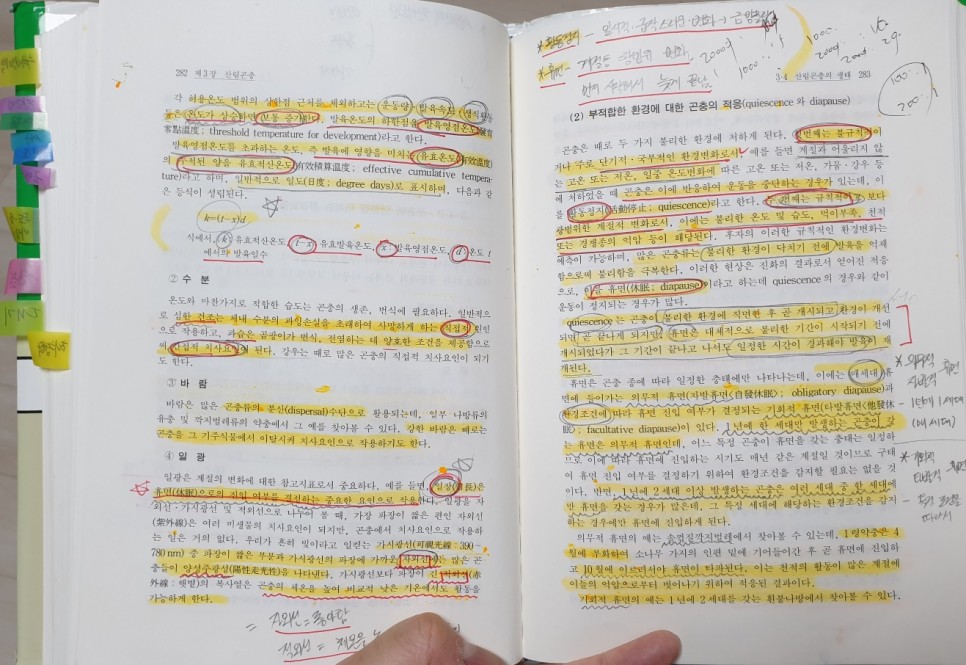 282 제3장 산림곤충
각 허용온도 범위의 상한점 근처를 제외하고는 운동량·발육속도·생식활동
등은 온도가 상승하면 보통 증가한다. 발육온도의 하한점을 발육영점온도(發育
零點溫度; threshold temperature for development)라고 한다.
발육영점온도를 초과하는 온도, 즉 발육에 영향을 미치는 유효온도(有效溫度)
의 누적된 양을 유효적산온도(有效積算溫度; effective cumulative tempera-
ture)라고 하며, 일반적으로 일도(日度; degree days)로 표시하며, 다음과 같
은 등식이 성립된다.
k=(t-x)d
식에서, k: 유효적산온도, t-x: 유효발육온도, x: 발육영점온도, d: 온도 t
에서의 발육일수
② 수 분
온도와 마찬가지로 적합한 습도는 곤충의 생존, 번식에 필요하다. 일반적으
로 심한 건조는 체내 수분의 과잉손실을 초래하여 사망하게 하는 직접적 원인
으로 작용하고, 과습은 곰팡이가 번식, 전염하는 데 양호한 조건을 제공함으로
써 간접적 치사요인이 된다. 강우는 때로 많은 곤충의 직접적 치사요인이 되기
도 한다.
③ 바 람
바람은 많은 곤충류의 분산(dispersal)수단으로 활용되는데, 일부 나방류의
유충 및 깍지벌레류의 약충에서 그 예를 찾아볼 수 있다. 강한 바람은 때로는
곤충을 그 기주식물에서 이탈시켜 치사요인으로 작용하기도 한다.
④ 일 광
일광은 계절의 변화에 대한 참고지표로서 중요하다. 예를 들면, 일장(日長)은
휴면(休眠)으로의 진입 여부를 결정하는 중요한 요인으로 작용한다. 일광을 자
외선·가시광선 및 적외선으로 나누어 볼 때, 가장 파장이 짧은 편인 자외선
(紫外線)은 여러 미생물의 치사요인이 되지만, 곤충에서 치사요인으로 작용하
는 일은 거의 없다. 우리가 흔히 빛이라고 일컫는 가시광선(可視光線; 390~
780nm) 중 파장이 짧은 부분과 가시광선의 파장에 가까운 자외선에는 많은 곤
충들이 양성주광성(陽性走光性)을 나타낸다. 가시광선보다 파장이 긴 적외선(赤
外線; 햇볕)의 복사열은 곤충의 체온을 높여 비교적 낮은 기온에서도 활동을
가능하게 한다.
= 자외선 = 좋아함
적외선 = 체온을
*활동정지 - 일시적·급작스러운 변화→
*휴면 - 계절등 광범위 변화
먼저 시작해서 늦게 끝남
3·4 산림곤충의 생태 283
(2) 부적합한 환경에 대한 곤충의 적응(quiescence와 diapause)
곤충은 때로 두 가지 불리한 환경에 처하게 된다. 첫번째는 불규칙적이
거나 주로 단기적·국부적인 환경변화로서, 예를 들면 계절과 어울리지 않
는 고온 또는 저온, 일중 온도변화에 따른 고온 또는 저온, 가뭄·강우 등
에 처하였을 때 곤충은 이에 반응하여 운동을 중단하는 경우가 있는데, 이
를 활동정지(活動停止; quiescence)라고 한다. 두 번째는 규칙적이고 보다
광범위한 계절적 변화로서, 이에는 불리한 온도 및 습도, 먹이부족, 천적
또는 경쟁종의 억압 등이 해당된다. 후자의 이러한 규칙적인 환경변화는
예측이 가능하며, 많은 곤충류는 불리한 환경이 닥치기 전에 발육을 억제
함으로써 불리함을 극복한다. 이러한 현상은 진화의 결과로서 얻어진 적응
으로, 이를 휴면(休眠; diapause)이라고 하는데 quiescence의 경우와 같이
운동이 정지되는 경우가 많다.
quiescence는 곤충이 불리한 환경에 직면한 후 곧 개시되고 환경이 개선
되면 곧 끝나게 되지만, 휴면은 대체적으로 불리한 기간이 시작되기 전에
개시되었다가 그 기간이 끝나고 나서도 일정한 시간이 경과해야 발육이 재
개된다.
휴면은 곤충 종에 따라 일정한 충태에만 나타나는데, 이에는 매세대 휴
면에 들어가는 의무적 휴면(자발휴면<自發休眠>; obligatory diapause)과
환경조건에 따라 휴면 진입 여부가 결정되는 기회적 휴면(타발휴면<他發休
眠>; facultative diapause)이 있다. 1년에 한 세대만 발생하는 곤충이 갖
는 휴면은 의무적 휴면인데, 어느 특정 곤충이 휴면을 갖는 충태는 일정하
므로 이에 따라 휴면에 진입하는 시기도 매년 같은 계절일 것이므로 구태
여 휴면 진입 여부를 결정하기 위하여 환경조건을 감지할 필요는 없을 것
이다. 반면, 1년에 2세대 이상 발생하는 곤충은 여러 세대 중 한 세대에
만 휴면을 갖는 경우가 많은데, 그 특정 세대에 해당하는 환경조건을 감지
하는 경우에만 휴면에 진입하게 된다.
의무적 휴면의 예는 솔껍질깍지벌레에서 찾아볼 수 있는데, 1령약충은 4
월에 부화하여 소나무 가지의 인편 밑에 기어들어간 후 곧 휴면에 진입하
고 10월에 이르러서야 휴면이 타파된다. 이는 천적의 활동이 많은 계절에
이들의 억압으로부터 벗어나기 위하여 적응된 결과이다.
기회적 휴면의 예는 1년에 2세대를 갖는 흰불나방에서 찾아볼 수 있다.
* 의무적
자발적 휴면
- 1년에 1세대
(매 세대)
* 기회적
타발적